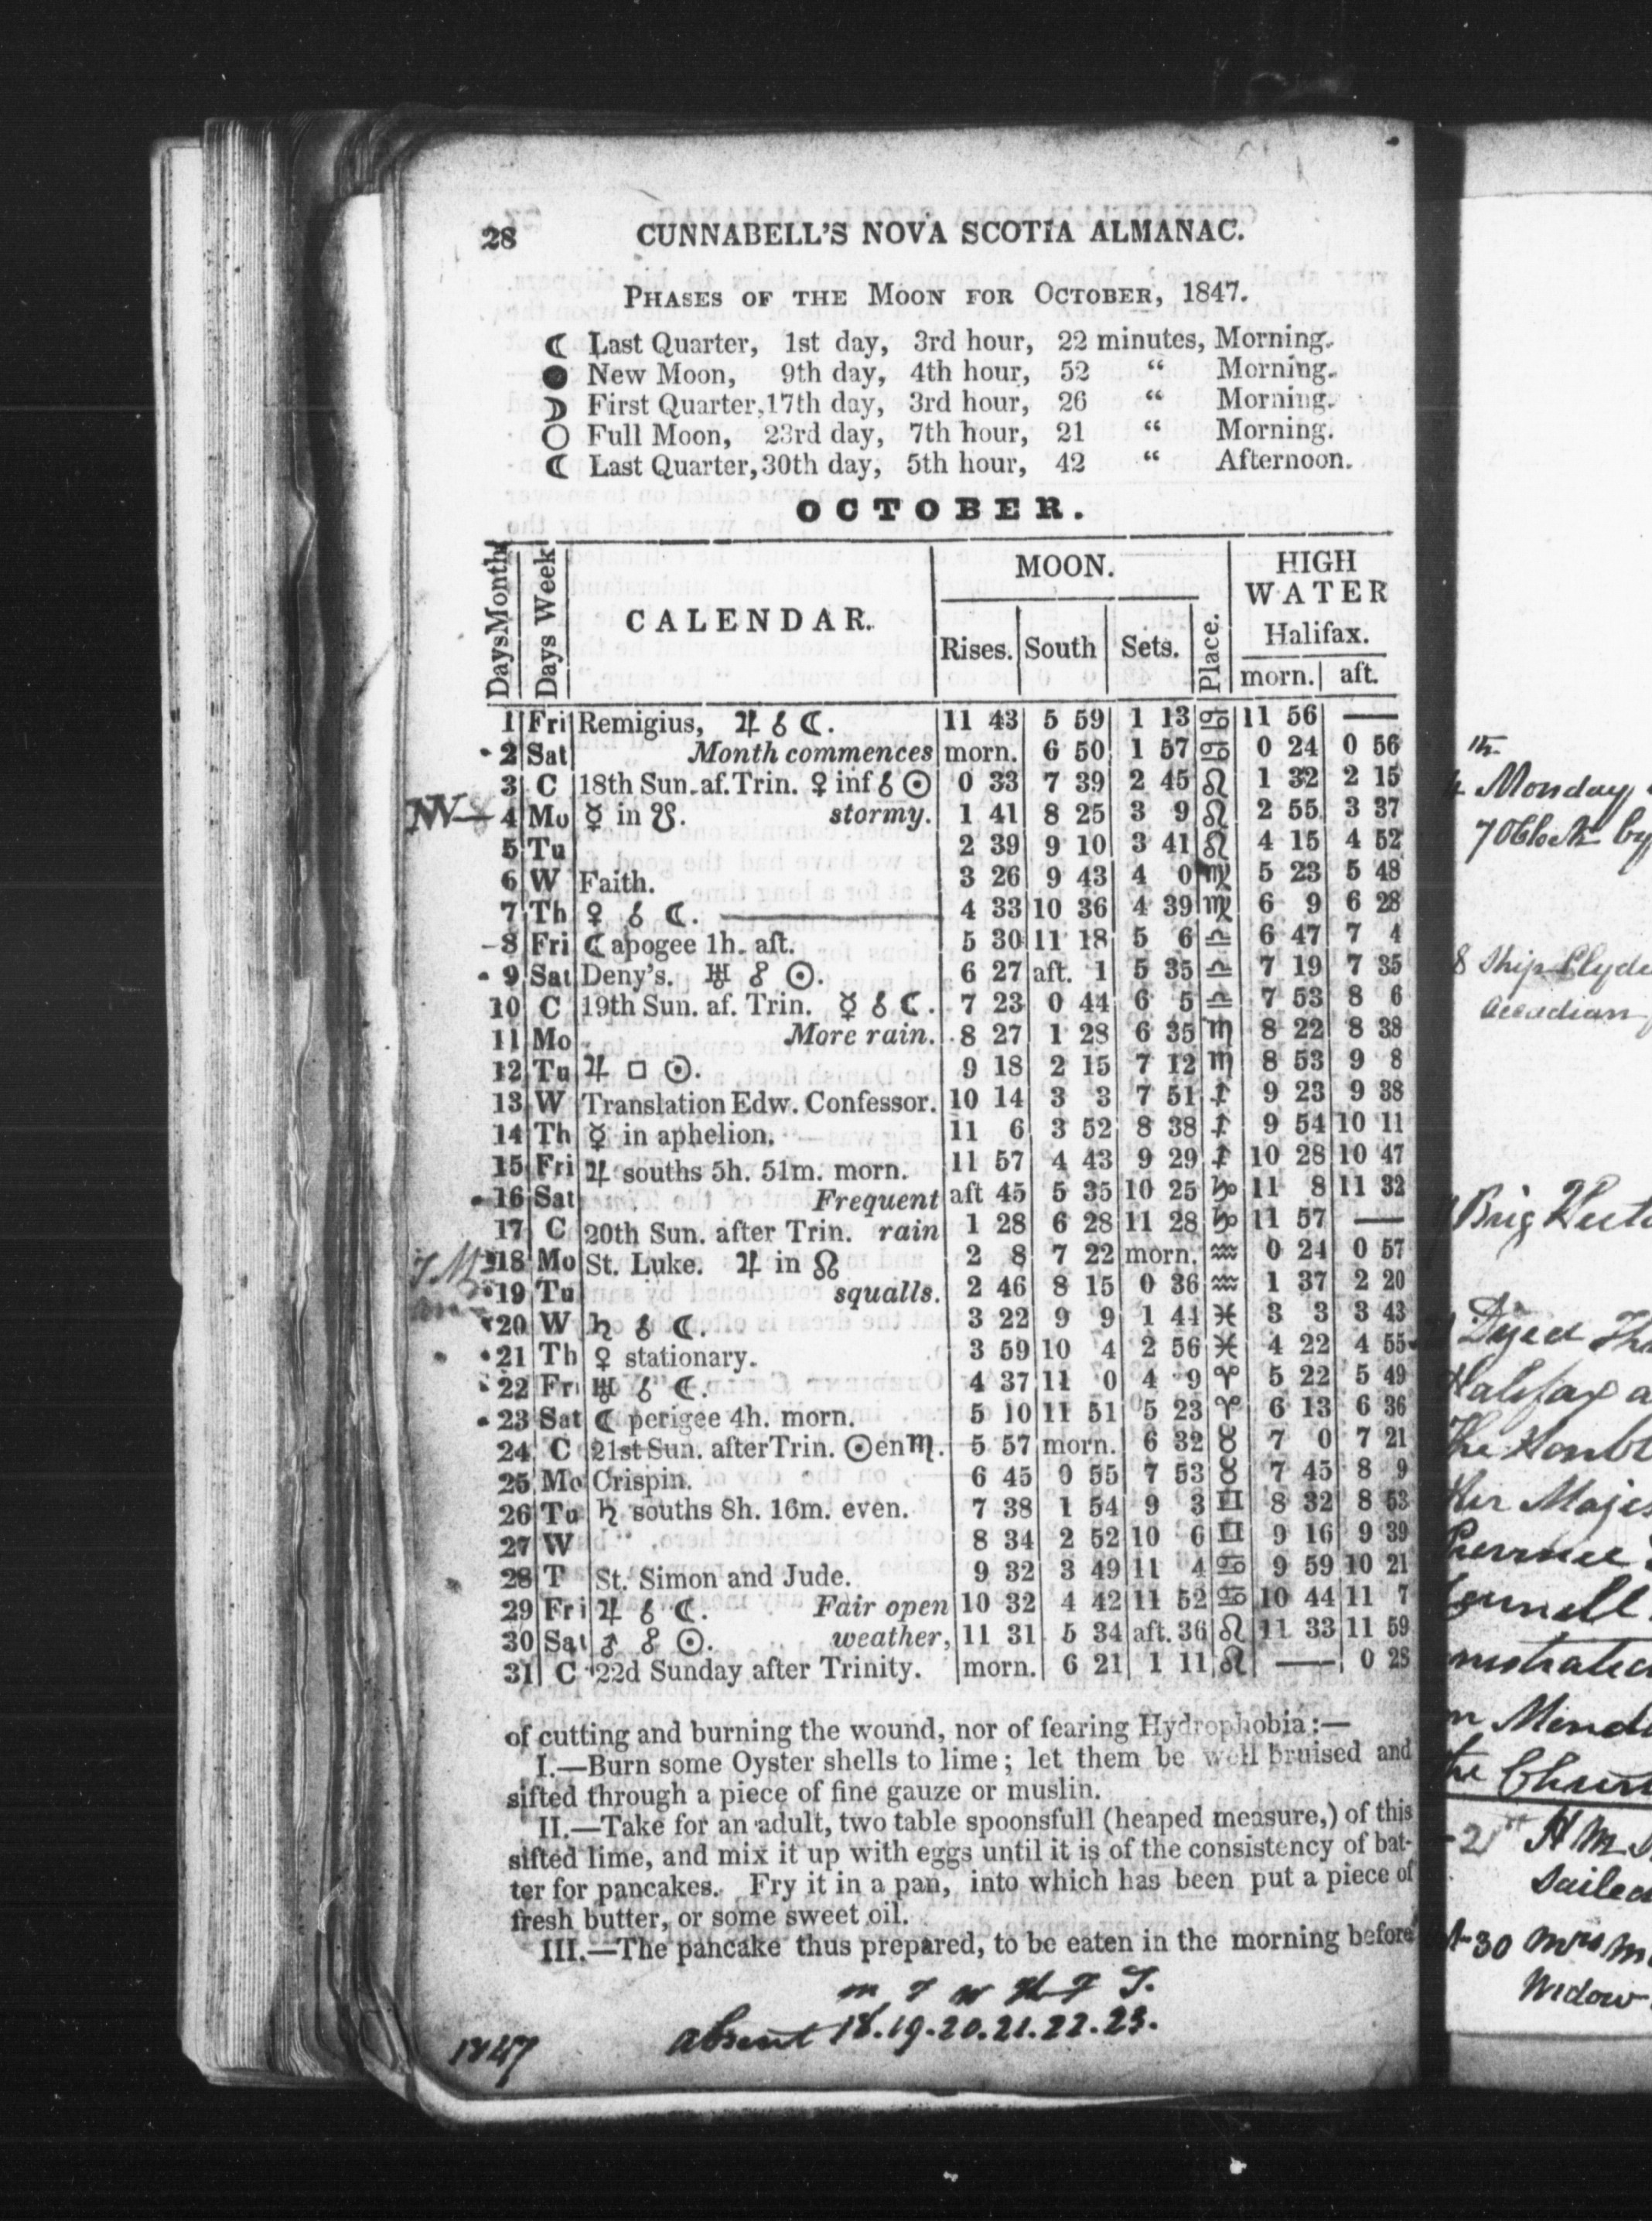 28 CUNNABELL'S NOVA SCOTIA ALMANAC.
PHASES OF THE MOON FOR OCTOBER, 1847.
☾ Last Quarter, 1st day, 3rd hour, 22 minutes, Morning.
● New Moon, 9th day, 4th hour, 52 “ Morning.
☽ First Quarter, 17th day, 3rd hour, 26 “ Morning.
○ Full Moon, 23rd day, 7th hour, 21 “ Morning.
☾ Last Quarter, 30th day, 5th hour, 42 “ Afternoon.
OCTOBER.
Days Month Days Week CALENDAR. MOON. HIGH WATER Halifax.
Rises. South Sets. Place. morn. aft.
1 Fri Remigius, ♃ ☌ ☾. 11 43 5 59 1 13 ♋ 11 56 ——
2 Sat Month commences morn. 6 50 1 57 ♋ 0 24 0 56
3 C 18th Sun. af. Trin. ♀ inf ☌ ☉ 0 33 7 39 2 45 ♌ 1 32 2 15
4 Mo ☿ in ☋. stormy. 1 41 8 25 3 9 ♌ 2 55 3 37
5 Tu 2 39 9 10 3 41 ♌ 4 15 4 52
6 W Faith. 3 26 9 43 4 0 ♍ 5 23 5 48
7 Th ♀ ☌ ☾. —— 4 33 10 36 4 39 ♍ 6 9 6 28
8 Fri ☾ apogee 1h. aft. 5 30 11 18 5 6 ♎ 6 47 7 4
9 Sat Deny's. ♅ ☍ ☉. 6 27 aft. 1 5 35 ♎ 7 19 7 35
10 C 19th Sun. af. Trin. ☿ ☌ ☾. 7 23 0 44 6 5 ♎ 7 53 8 6
11 Mo More rain. 8 27 1 28 6 35 ♏ 8 22 8 38
12 Tu ♃ □ ☉. 9 18 2 15 7 12 ♏ 8 53 9 8
13 W Translation Edw. Confessor. 10 14 3 3 7 51 ♐ 9 23 9 38
14 Th ☿ in aphelion. 11 6 3 52 8 38 ♐ 9 54 10 11
15 Fri ♃ souths 5h. 51m. morn. 11 57 4 43 9 29 ♐ 10 28 10 47
16 Sat Frequent aft 45 5 35 10 25 ♑ 11 8 11 32
17 C 20th Sun. after Trin. rain 1 28 6 28 11 28 ♑ 11 57 ——
18 Mo St. Luke. ♃ in ☊ 2 8 7 22 morn. ♒ 0 24 0 57
19 Tu squalls. 2 46 8 15 0 36 ♒ 1 37 2 20
20 W ♄ ☌ ☾. 3 22 9 9 1 44 ♓ 3 3 3 43
21 Th ♀ stationary. 3 59 10 4 2 56 ♓ 4 22 4 55
22 Fr ♅ ☌ ☾. 4 37 11 0 4 9 ♈ 5 22 5 49
23 Sat ☾ perigee 4h. morn. 5 10 11 51 5 23 ♈ 6 13 6 36
24 C 21st Sun. after Trin. ☉ en ♏. 5 57 morn. 6 32 ♉ 7 0 7 21
25 Mo Crispin. 6 45 0 55 7 53 ♉ 7 45 8 9
26 Tu ♄ souths 8h. 16m. even. 7 38 1 54 9 3 ♊ 8 32 8 53
27 W 8 34 2 52 10 6 ♊ 9 16 9 39
28 T St. Simon and Jude. 9 32 3 49 11 4 ♋ 9 59 10 21
29 Fri ♃ ☌ ☾. Fair open 10 32 4 42 11 52 ♋ 10 44 11 7
30 Sat ♂ ☍ ☉. weather, 11 31 5 34 aft. 36 ♌ 11 33 11 59
31 C 22d Sunday after Trinity. morn. 6 21 1 11 ♌ —— 0 28
of cutting and burning the wound, nor of fearing Hydrophobia:—
I.—Burn some Oyster shells to lime; let them be well bruised and
sifted through a piece of fine gauze or muslin.
II.—Take for an adult, two table spoonsfull (heaped measure,) of this
sifted lime, and mix it up with eggs until it is of the consistency of bat-
ter for pancakes. Fry it in a pan, into which has been put a piece of
fresh butter, or some sweet oil.
III.—The pancake thus prepared, to be eaten in the morning before
m T W Th F S.
absent 18.19.20.21.22.23.
1847
4 Monday
7 OClock by
8 Ship Clyde
Accadian
Brig
Dyed
Halifax a
the Honble
Her Majes
n Monda
the Church
21st H M
Sailed
30 Mrs
Widow